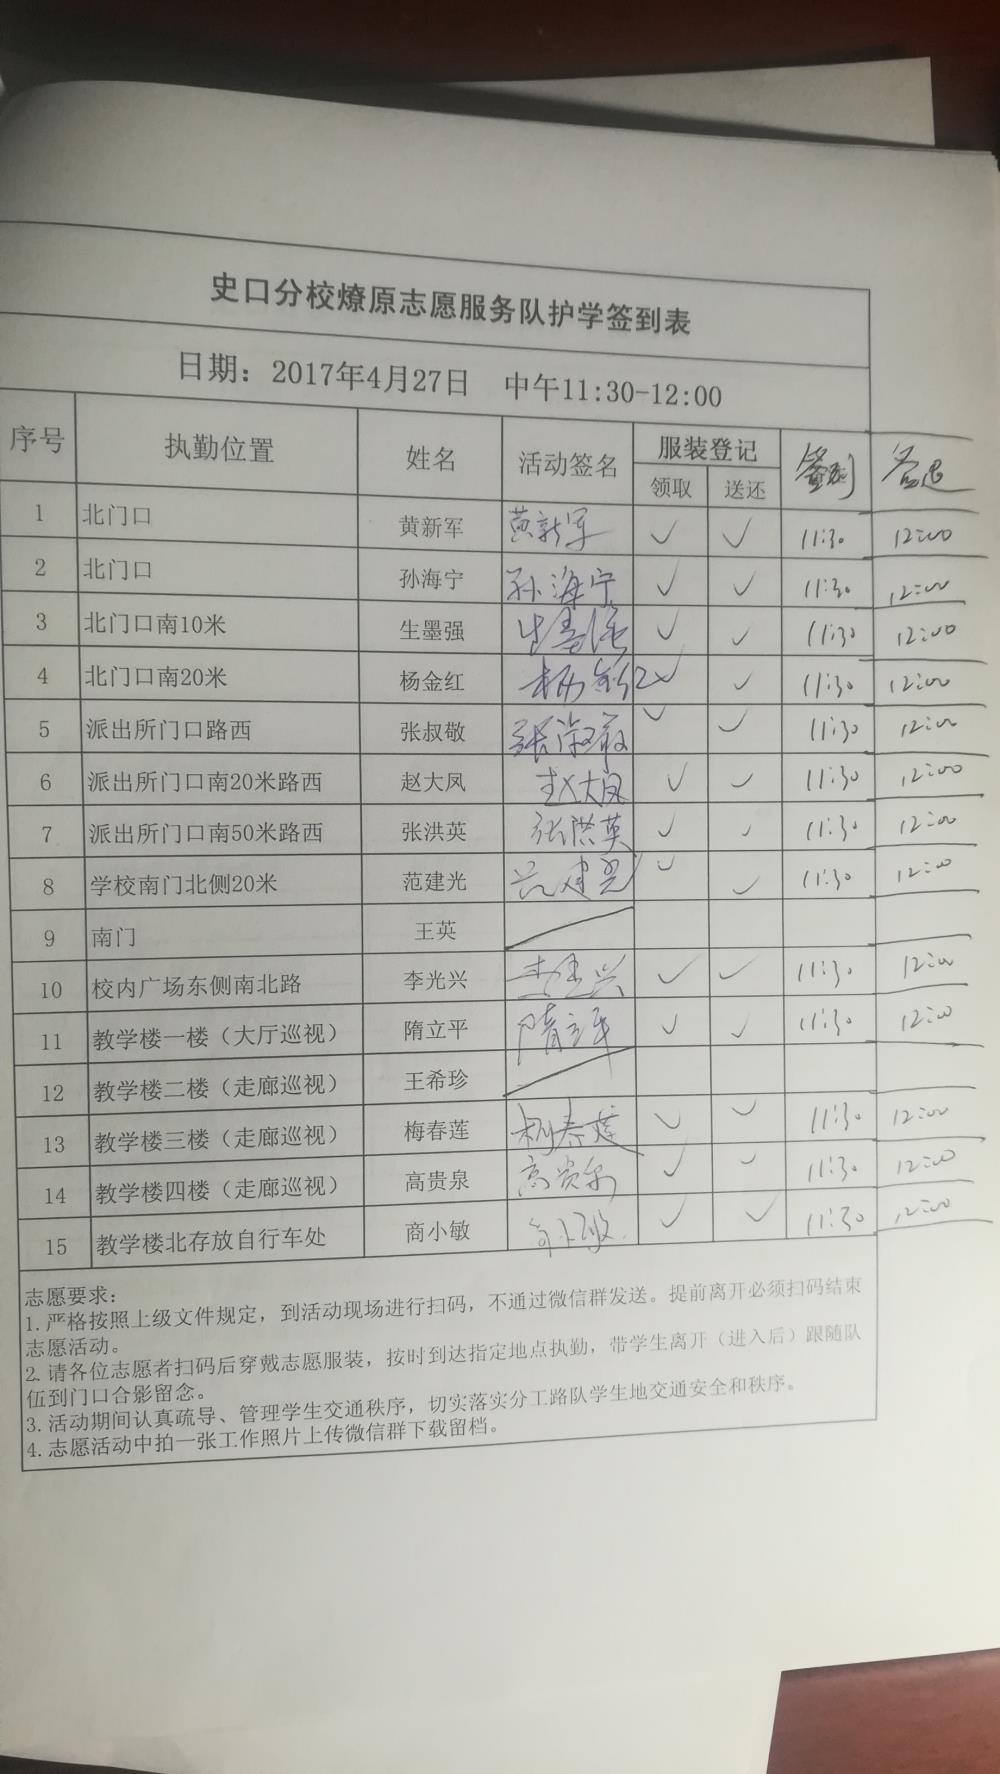 史口分校燎原志愿服务队护学签到表
日期：2017年4月27日 中午11:30-12:00
序号 执勤位置 姓名 活动签名 服装登记 签到 签退
领取 送还
1 北门口 黄新军 黄新军 ✓ ✓ 11:30 12:00
2 北门口 孙海宁 孙海宁 ✓ ✓ 11:30 12:00
3 北门口南10米 生墨强 生墨强 ✓ ✓ 11:30 12:00
4 北门口南20米 杨金红 杨金红 ✓ ✓ 11:30 12:00
5 派出所门口路西 张叔敬 张淑敬 ✓ ✓ 11:30 12:00
6 派出所门口南20米路西 赵大凤 赵大凤 ✓ ✓ 11:30 12:00
7 派出所门口南50米路西 张洪英 张洪英 ✓ ✓ 11:30 12:00
8 学校南门北侧20米 范建光 范建光 ✓ ✓ 11:30 12:00
9 南门 王英
10 校内广场东侧南北路 李光兴 李光兴 ✓ ✓ 11:30 12:00
11 教学楼一楼（大厅巡视） 隋立平 隋立平 ✓ ✓ 11:30 12:00
12 教学楼二楼（走廊巡视） 王希珍
13 教学楼三楼（走廊巡视） 梅春莲 梅春莲 ✓ ✓ 11:30 12:00
14 教学楼四楼（走廊巡视） 高贵泉 高贵泉 ✓ ✓ 11:30 12:00
15 教学楼北存放自行车处 商小敏 商小敏 ✓ ✓ 11:30 12:00
志愿要求：
1.严格按照上级文件规定，到活动现场进行扫码，不通过微信群发送。提前离开必须扫码结束
志愿活动。
2.请各位志愿者扫码后穿戴志愿服装，按时到达指定地点执勤，带学生离开（进入后）跟随队
伍到门口合影留念。
3.活动期间认真疏导、管理学生交通秩序，切实落实分工路队学生地交通安全和秩序。
4.志愿活动中拍一张工作照片上传微信群下载留档。